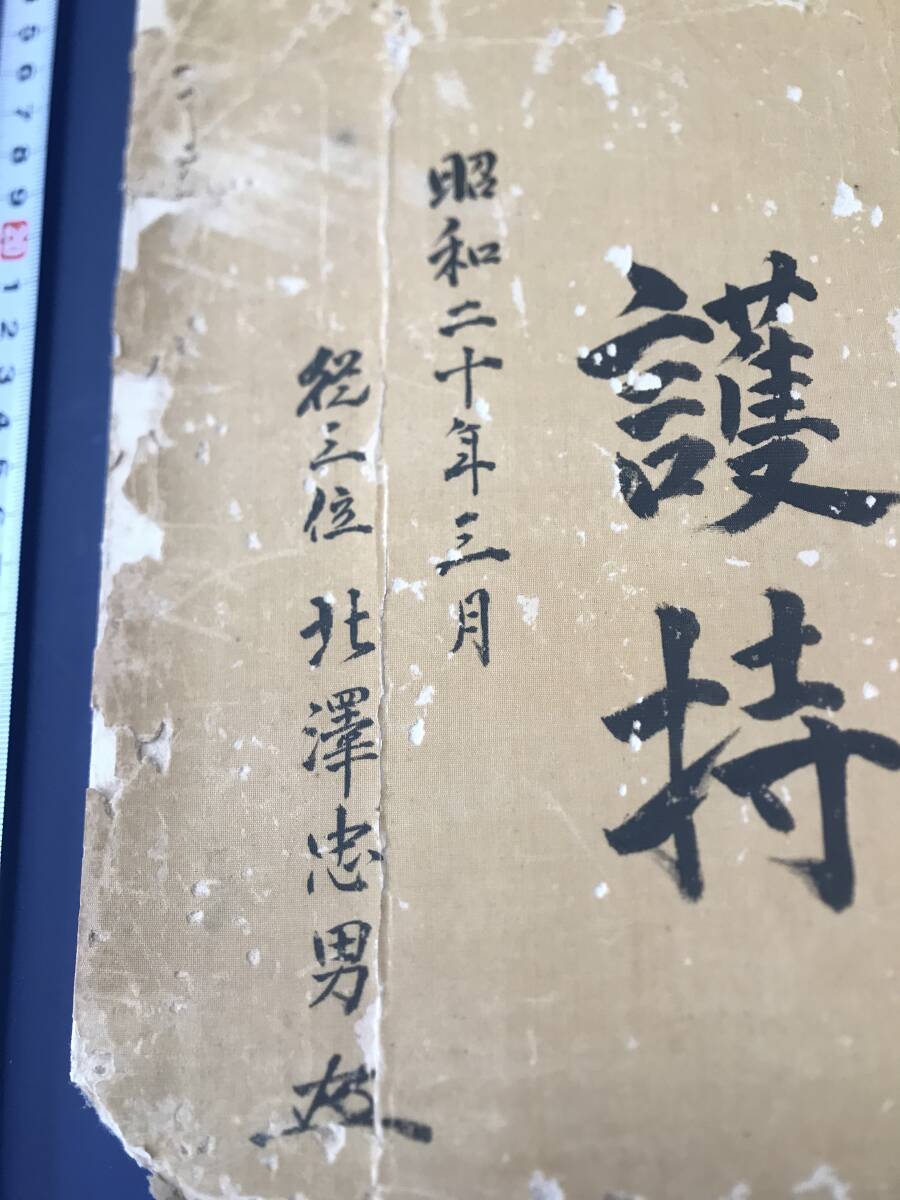 護持
昭和二十年三月
從三位 北澤忠男
5 6 7 8 9 20 1 2 3 4 5 6